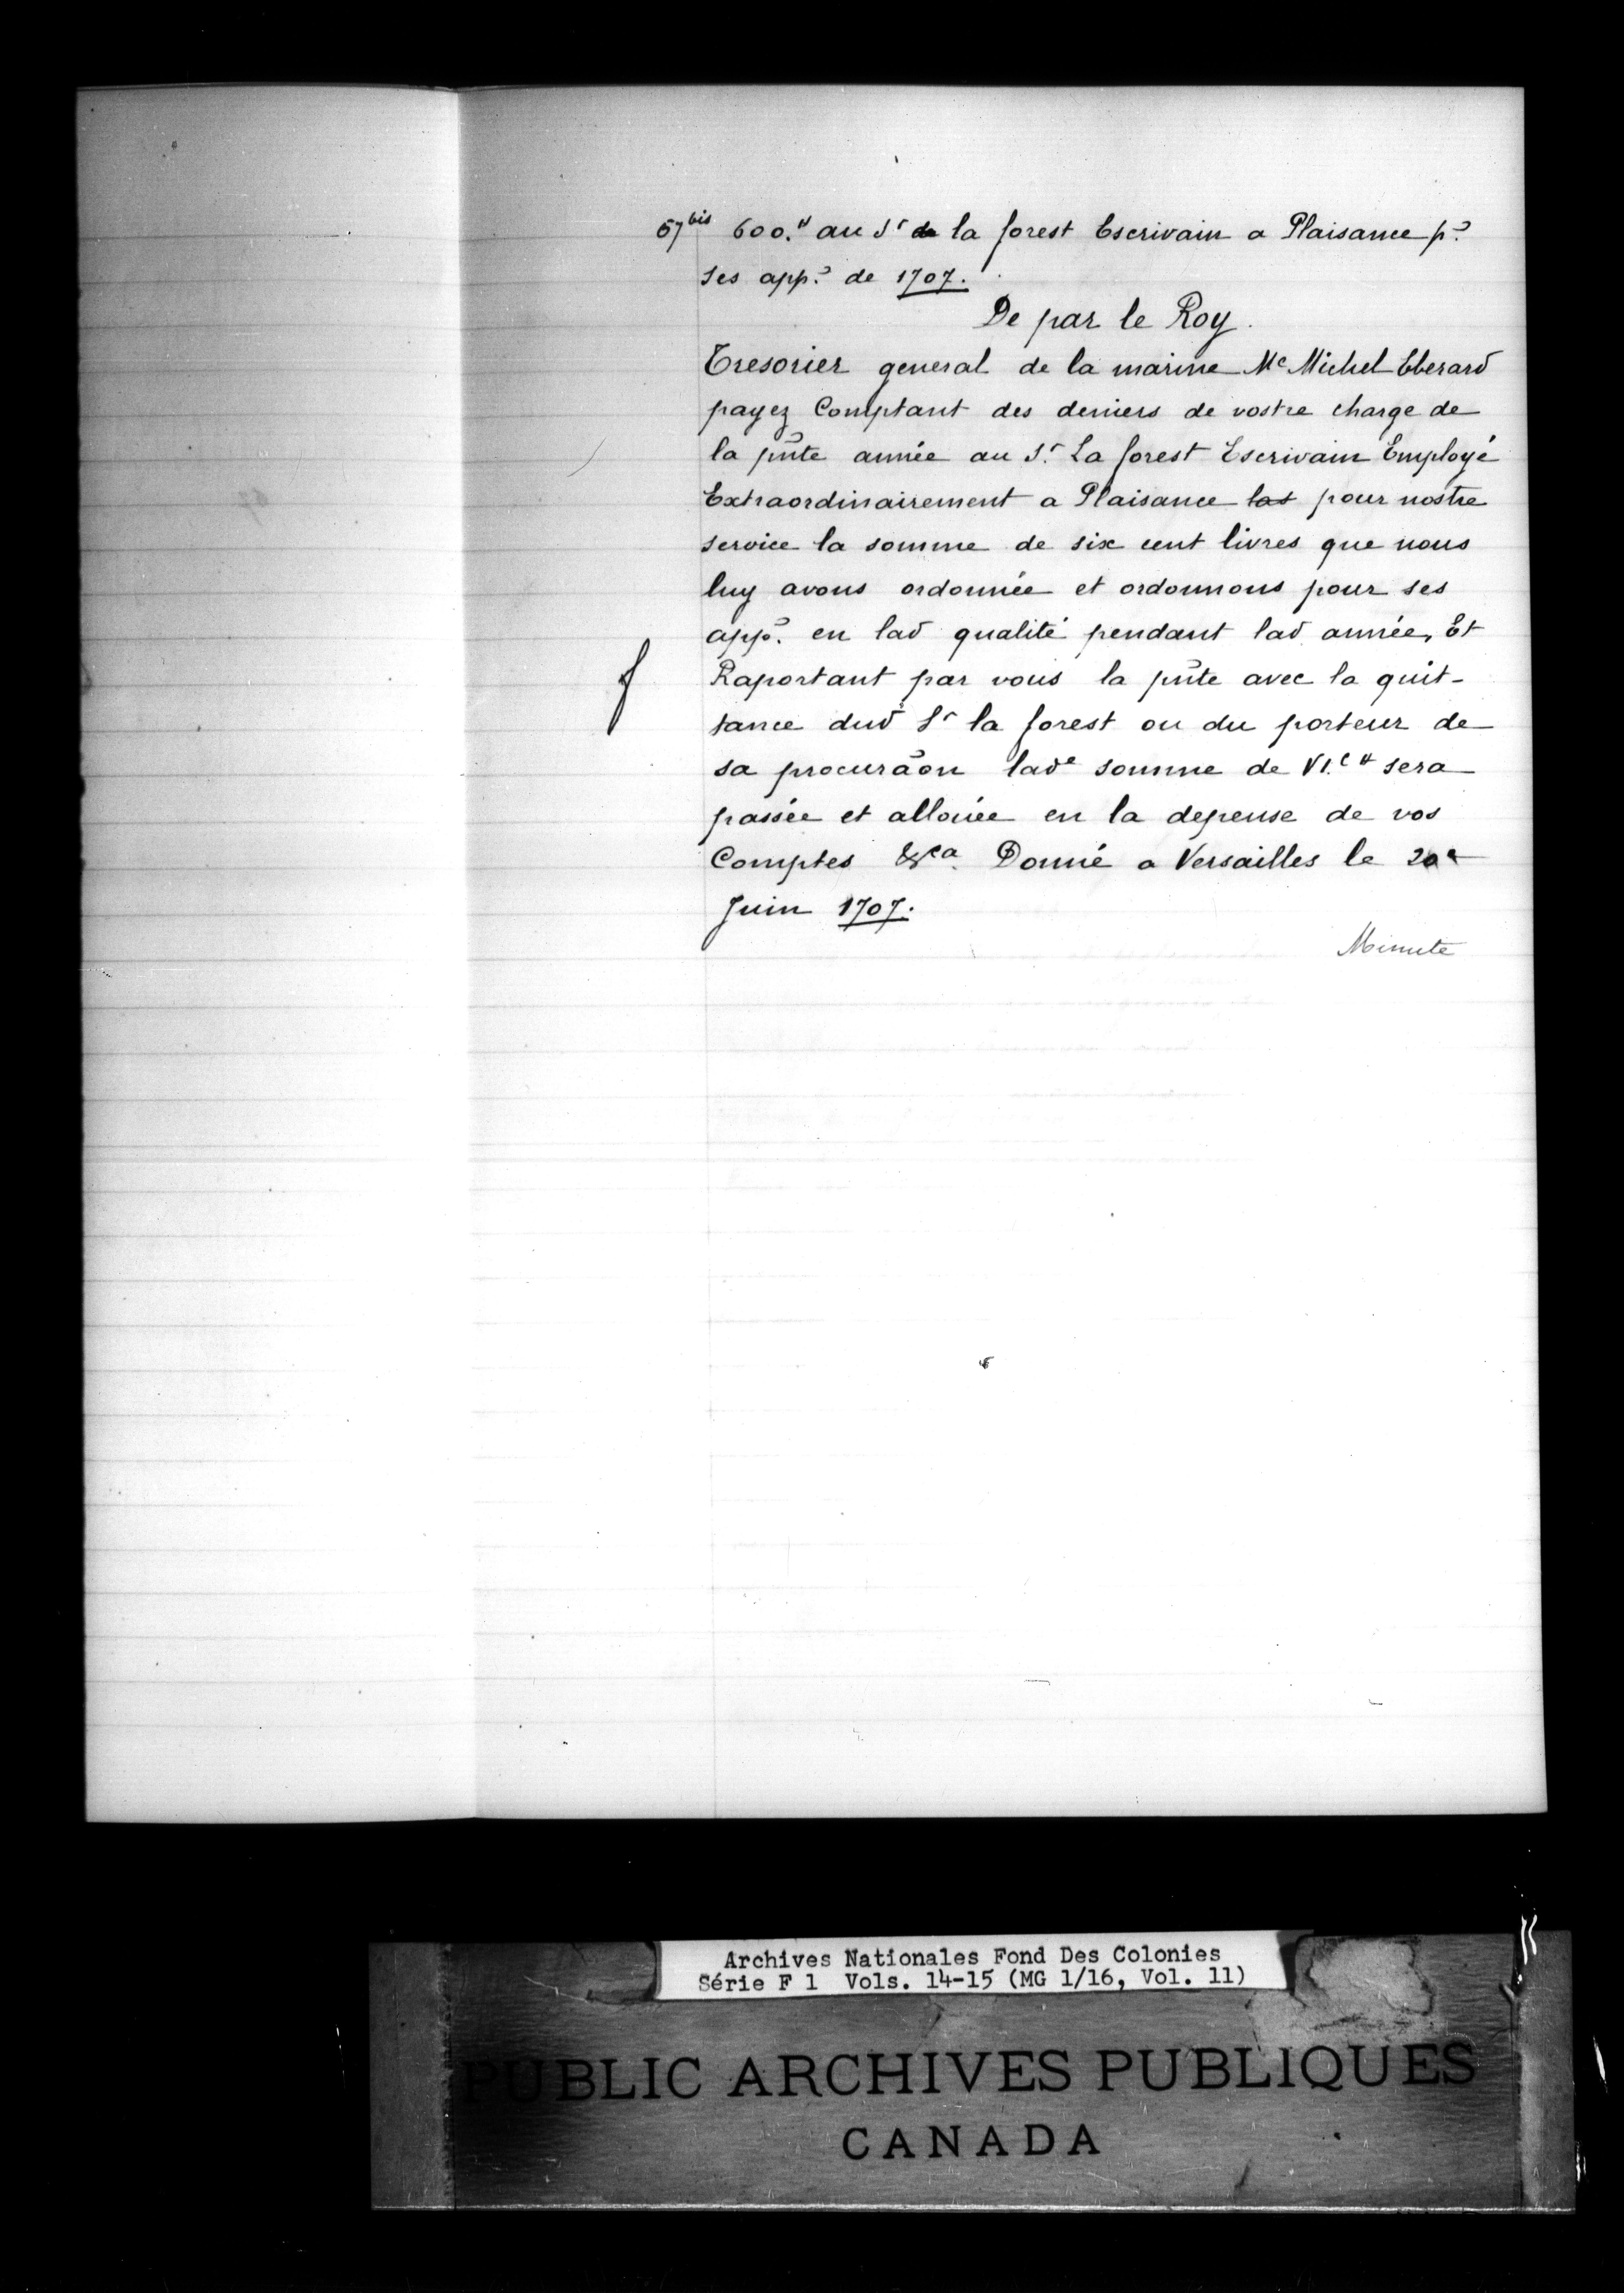 67bis 600.# au Sr de la forest Escrivain a Plaisance pr
ses app.t de 1707.
De par le Roy.
Tresorier general de la marine Me Michel Eberard
payez Comptant des deniers de vostre charge de
la pñte année au Sr. La forest Escrivain Employé
Extraordinairement a Plaisance las pour nostre
service la somme de six cent livres que nous
luy avons ordonnée et ordonnons pour ses
app.t en lad qualité pendant lad année, Et
Raportant par vous la pñte avec la quit-
tance dud Sr la forest ou du porteur de
sa procurãon lade somme de VI.c # sera
passée et allouée en la depense de vos
Comptes &ca. Donné a Versailles le 20e
Juin 1707.
Minute
Archives Nationales Fond Des Colonies
Série F 1 Vols. 14-15 (MG 1/16, Vol. 11)
PUBLIC ARCHIVES PUBLIQUES
CANADA